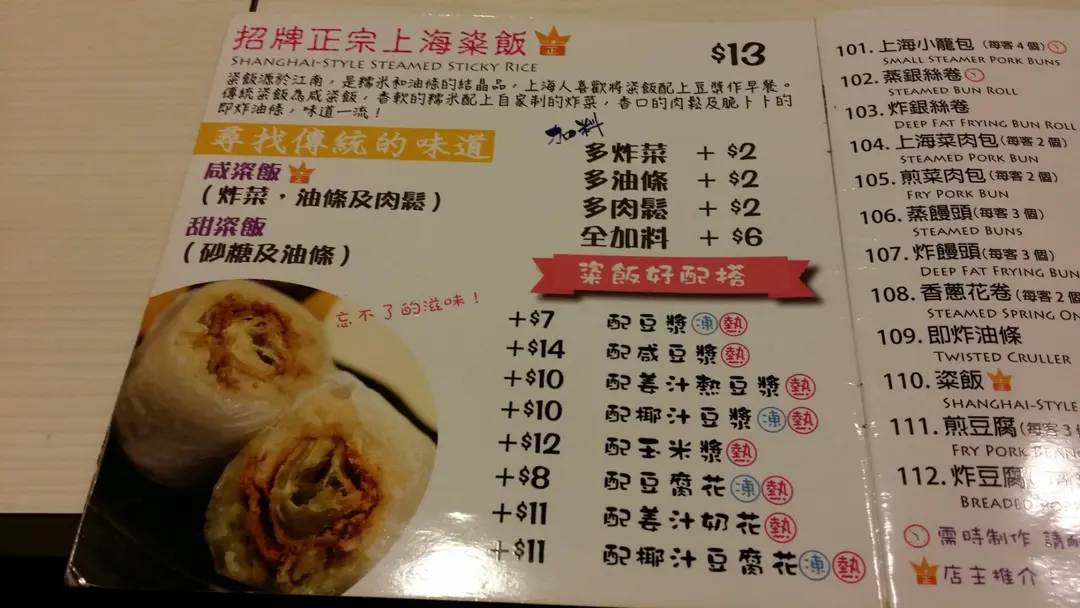 招牌正宗上海粢飯 正
SHANGHAI-STYLE STEAMED STICKY RICE
$13
粢飯源於江南，是糯米和油條的結晶品，上海人喜歡將粢飯配上豆漿作早餐。
傳統粢飯為咸粢飯，香軟的糯米配上自家制的炸菜，香口的肉鬆及脆卜卜的
即炸油條，味道一流！
尋找傳統的味道
咸粢飯
(炸菜，油條及肉鬆)
甜粢飯
(砂糖及油條)
忘不了的滋味！
加料
多炸菜 + $2
多油條 + $2
多肉鬆 + $2
全加料 + $6
粢飯好配搭
+$7 配豆漿 凍 熱
+$14 配咸豆漿 熱
+$10 配姜汁熱豆漿 熱
+$10 配椰汁豆漿 凍 熱
+$12 配玉米漿 熱
+$8 配豆腐花 凍 熱
+$11 配姜汁奶花 熱
+$11 配椰汁豆腐花 凍 熱
101. 上海小籠包 (每客4個)
SMALL STEAMER PORK BUNS
102. 蒸銀絲卷
STEAMED BUN ROLL
103. 炸銀絲卷
DEEP FAT FRYING BUN ROLL
104. 上海菜肉包 (每客2個)
STEAMED PORK BUN
105. 煎菜肉包 (每客2個)
FRY PORK BUN
106. 蒸饅頭 (每客3個)
STEAMED BUNS
107. 炸饅頭 (每客3個)
DEEP FAT FRYING BUN
108. 香蔥花卷 (每客2個
STEAMED SPRING ON
109. 即炸油條
TWISTED CRULLER
110. 粢飯
SHANGHAI-STYLE
111. 煎豆腐 (每客3
FRY PORK BEAN
112. 炸豆腐
BREADED
需時制作 請
店主推介